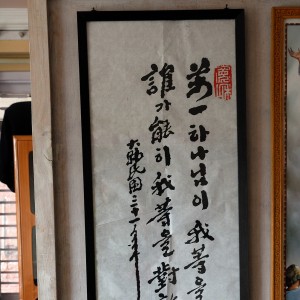 萬一하나님이我等을
誰가能히我等을對
大韓民国三十一年